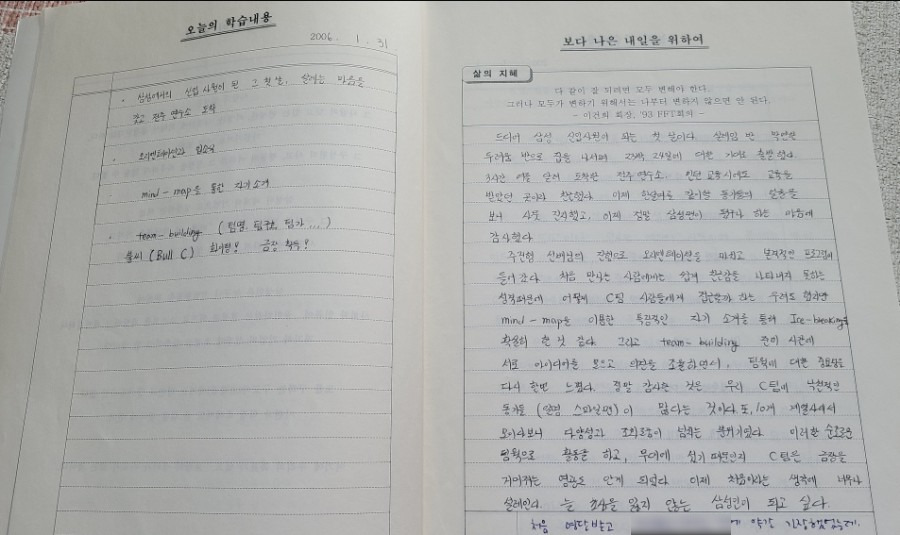 오늘의 학습내용
2006. 1. 31
· 삼성에서의 신입 사원이 된 그 첫 날, 설레는 마음을
갖고 전주 연수소 도착
· 오리엔테이션과 입소식
· mind-map을 통한 자기소개
· team-building (팀명, 팀구호, 팀가...)
불씨 (Bull C) 화이팅! 금장 획득!
보다 나은 내일을 위하여
삶의 지혜
다 같이 잘 되려면 모두 변해야 한다.
그러나 모두가 변하기 위해서는 나부터 변하지 않으면 안 된다.
- 이건희 회장, '93 FFT회의 -
드디어 삼성 신입사원이 되는 첫 날이다. 설레임 반 막연한
두려움 반으로 집을 나서며 23박 24일에 대한 기대로 출발했다.
3시간 여를 달려 도착한 전주 연수소. 인턴 교육시에도 교육을
받았던 곳이라 친근했다. 이제 한달 동기들의 얼굴을
보니 사뭇 긴장했고, 이제 정말 삼성맨이 됐구나 하는 마음에
감사했다.
주진형 선배님의 진행으로 오리엔테이션을 마치고 본격적인 프로그램에
들어 갔다. 처음 만나는 사람에게는 쉽게 친근감을 나타내지 못하는
성격때문에 어떻게 C팀 사람들에게 접근할까 하는 두려도
mind-map을 이용한 특징적인 자기 소개를 통해 Ice-breaking을
확실히 한 것 같다. 그리고 team-building 준비 시간에
서로 아이디어를 모으고 의견을 조율하면서, 팀웍에 대한 중요성을
다시 한번 느꼈다. 정말 감사한 것은 우리 C팀에 낙천적인
동기들 (일명 스마일맨) 이 많다는 것이다. 또, 10개 계열사에서
모이다보니 다양성과 조화로움이 넘치는 분위기였다. 이러한 순조로운
팀웍으로 활동을 하고, 무대에 섰기 때문인지 C팀은 금장을
거머쥐는 영광도 안게 되었다. 이제 처음이라는 생각에 너무나
설레인다. 늘 초심을 잃지 않는 삼성인이 되고 싶다.
처음 약간 긴장했었는데.